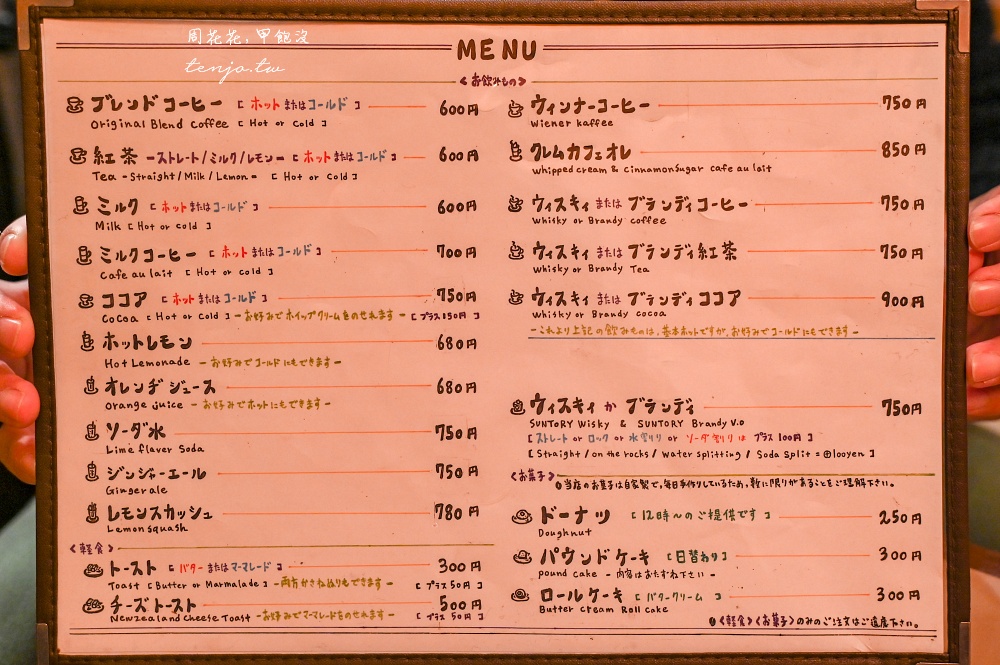 周花花，甲飽沒
tenjo.tw
MENU
<お飲みもの>
ブレンドコーヒー [ホットまたはコールド] 600円
Original Blend Coffee [Hot or Cold]
紅茶 -ストレート/ミルク/レモン- [ホットまたはコールド] 600円
Tea -Straight/Milk/Lemon- [Hot or Cold]
ミルク [ホットまたはコールド] 600円
Milk [Hot or Cold]
ミルクコーヒー [ホットまたはコールド] 700円
Cafe au lait [Hot or Cold]
ココア [ホットまたはコールド] 750円
Cocoa [Hot or Cold] -お好みでホイップクリームをのせれます- [プラス150円]
ホットレモン 680円
Hot Lemonade -お好みでコールドにもできます-
オレンヂジュース 680円
Orange juice -お好みでホットにもできます-
ソーダ水 750円
Lime flaver Soda
ジンジャーエール 750円
Gingerale
レモンスカッシュ 780円
Lemonsquash
<軽食>
トースト [バターまたはマーマレード] 300円
Toast [Butter or Marmalade] -両方かさねぬりもできます- [プラス50円]
チーズトースト 500円
Newzealand cheese Toast -お好みでマーマレードをのせれます- [プラス50円]
ウィンナーコーヒー 750円
Wiener kaffee
クレムカフェオレ 850円
Whipped cream & Cinnamonsugar cafe au lait
ウィスキィまたはブランディコーヒー 750円
Whisky or Brandy coffee
ウィスキィまたはブランディ紅茶 750円
Whisky or Brandy Tea
ウィスキィまたはブランディココア 900円
Whisky or Brandy cocoa
-これより上記の飲みものは、基本ホットですが、お好みでコールドにもできます-
ウィスキィかブランディ 750円
SUNTORY Wisky & SUNTORY Brandy V.O
[ストレート or ロック or 水割り or ソーダ割りはプラス100円]
[Straight/on the rocks/Water splitting/Soda Split=⊕100yen]
<お菓子>
当店のお菓子は自家製で、毎日手作りしているため、数に限りがあることをご理解下さい。
ドーナツ [12時〜のご提供です] 250円
Doughnut
パウンドケーキ [日替わり] 300円
pound cake -内容はおたずね下さい-
ロールケーキ [バタークリーム] 300円
Butter cream Roll cake
<軽食><お菓子>のみのご注文はご遠慮下さい。